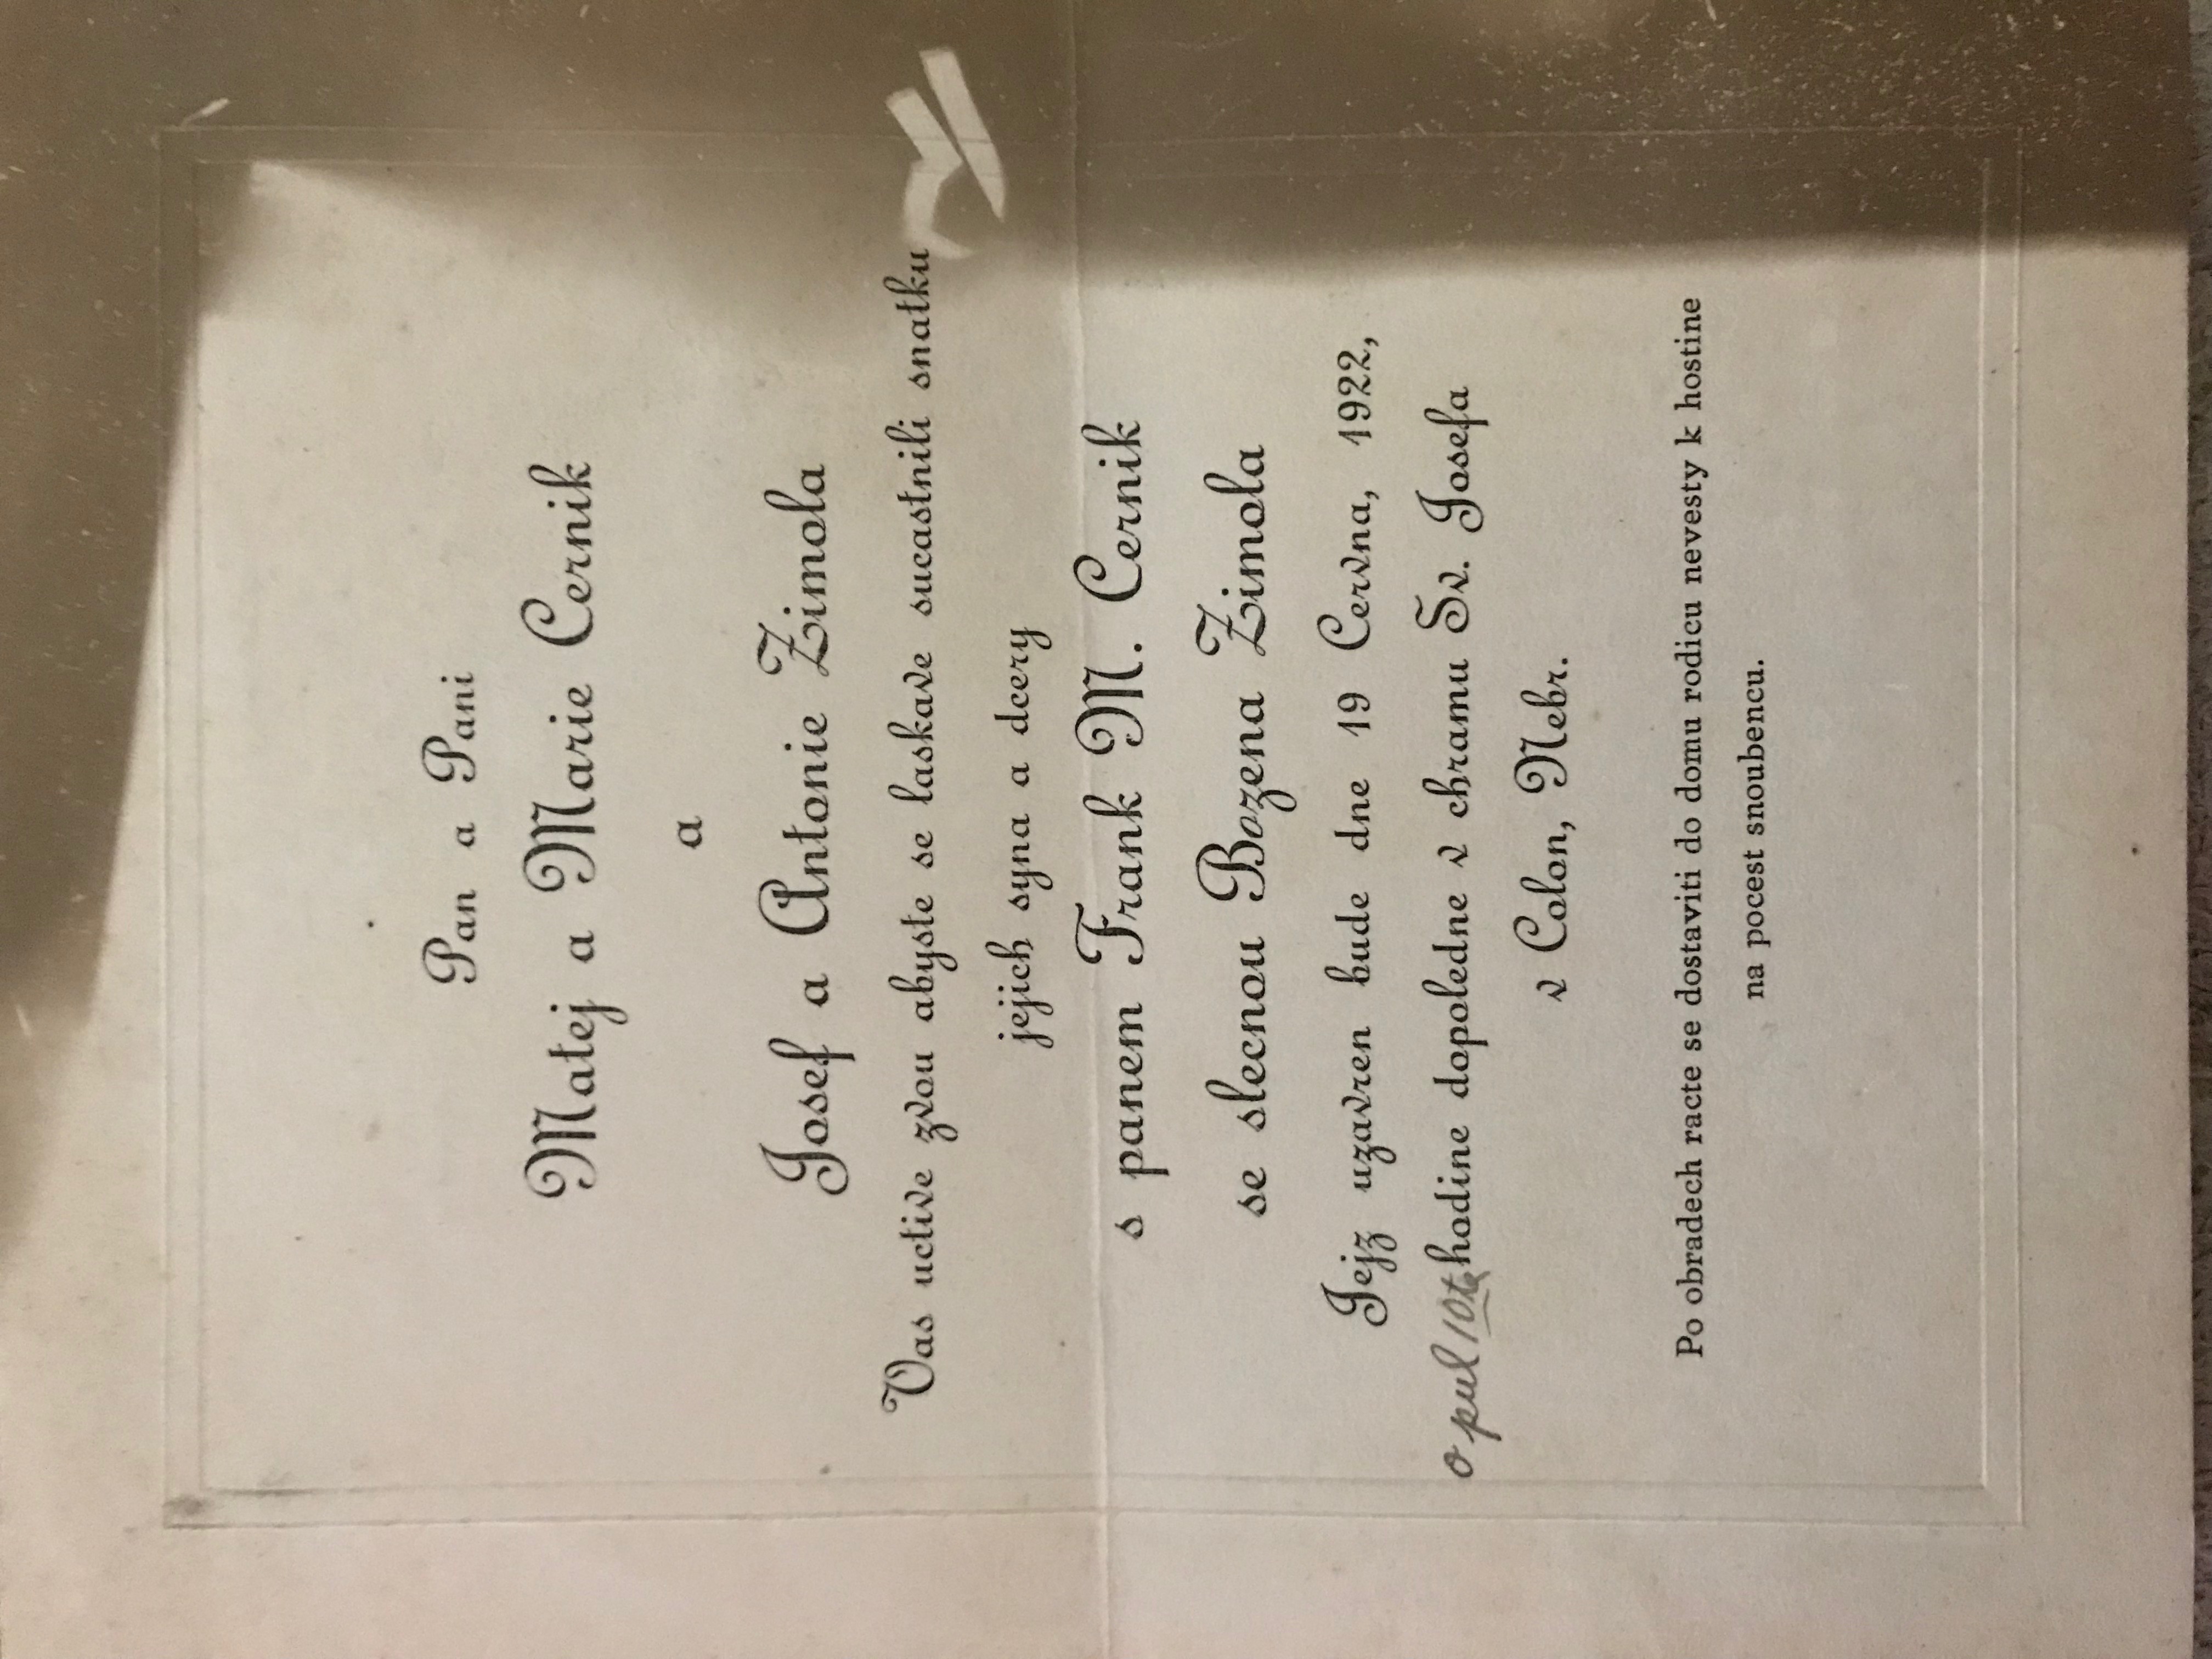 Pan a Pani
Matej a Marie Cernik
a
Josef a Antonie Zimola
Vas uctive zvou abyste se laskave sucastnili snatku
jejich syna a dcery
s panem Frank M. Cernik
se slecnou Bozena Zimola
Jejz uzavren bude dne 19 Cervna, 1922,
o pul 10te hodine dopoledne v chramu Sv. Josefa
v Colon, Nebr.
Po obradech racte se dostaviti do domu rodicu nevesty k hostine
na pocest snoubencu.